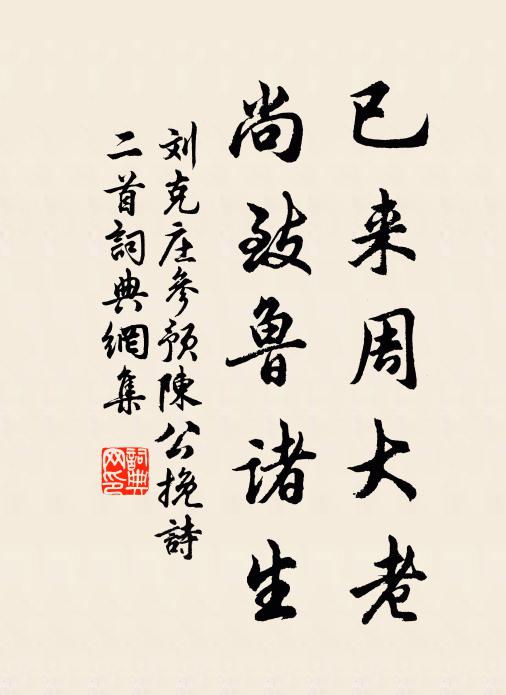 已来周大老
尚致鲁诸生
刘克庄參预陳公挽詩
二首詞典網集
詞典网印